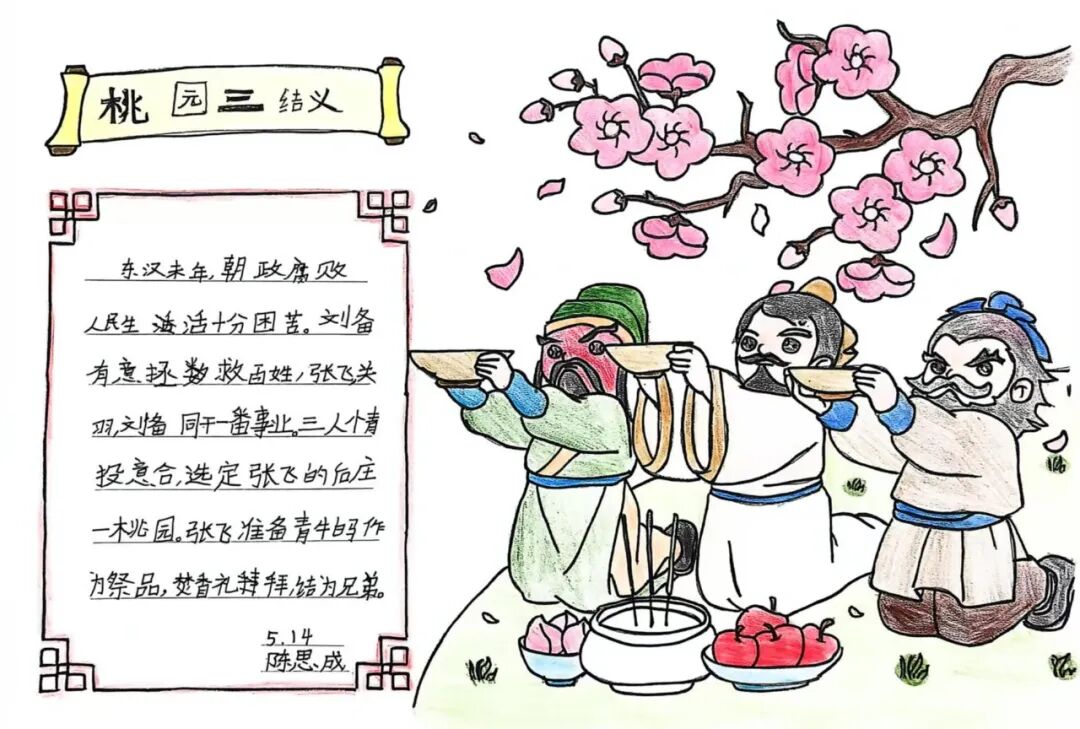 桃元三结义
东汉末年,朝政腐败
人民生活十分困苦。刘备
有意拯救百姓,张飞关
羽,刘备同干一番事业。三人情
投意合,选定张飞的后庄
一桃园。张飞准备青牛白马作
为祭品,焚香礼拜,结为兄弟。
5.14
陈思成